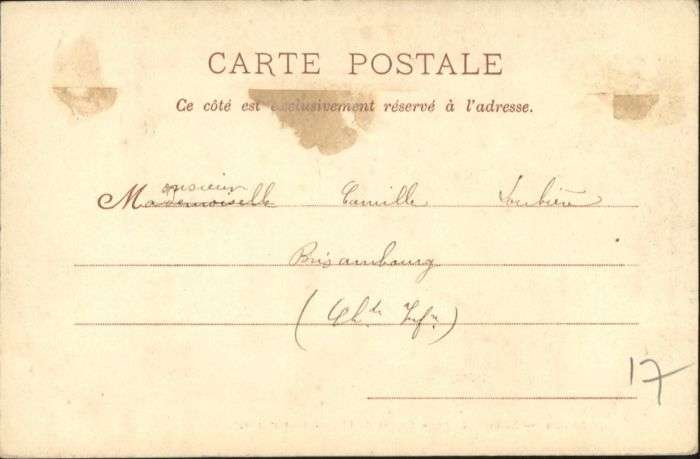 CARTE POSTALE
Ce côté est exclusivement réservé à l'adresse.
onsieur
Mademoiselle Camille Loubière
Brisambourg
(Ch.te Infre)
17